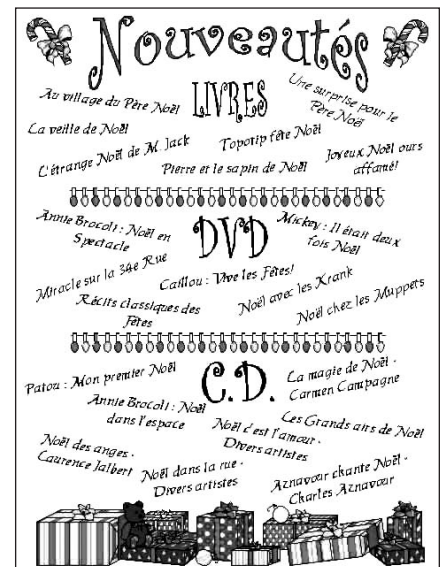 Nouveautés
LIVRES
Au village du Père Noël
Une surprise pour le
Père Noël
La veille de Noël
Topotip fête Noël
L'étrange Noël de M. Jack
Pierre et le sapin de Noël
Joyeux Noël ours
affamé!
DVD
Annie Brocoli : Noël en
Spectacle
Mickey : Il était deux
fois Noël
Miracle sur la 34e Rue
Caillou : Vive les Fêtes!
Récits classiques des
Fêtes
Noël avec les Krank
Noël chez les Muppets
C.D.
Patou : Mon premier Noël
La magie de Noël -
Carmen Campagne
Annie Brocoli : Noël
dans l'espace
Noël c'est l'amour -
Divers artistes
Les Grands airs de Noël
Noël des anges -
Laurence Jalbert
Noël dans la rue -
Divers artistes
Aznavour chante Noël -
Charles Aznavour